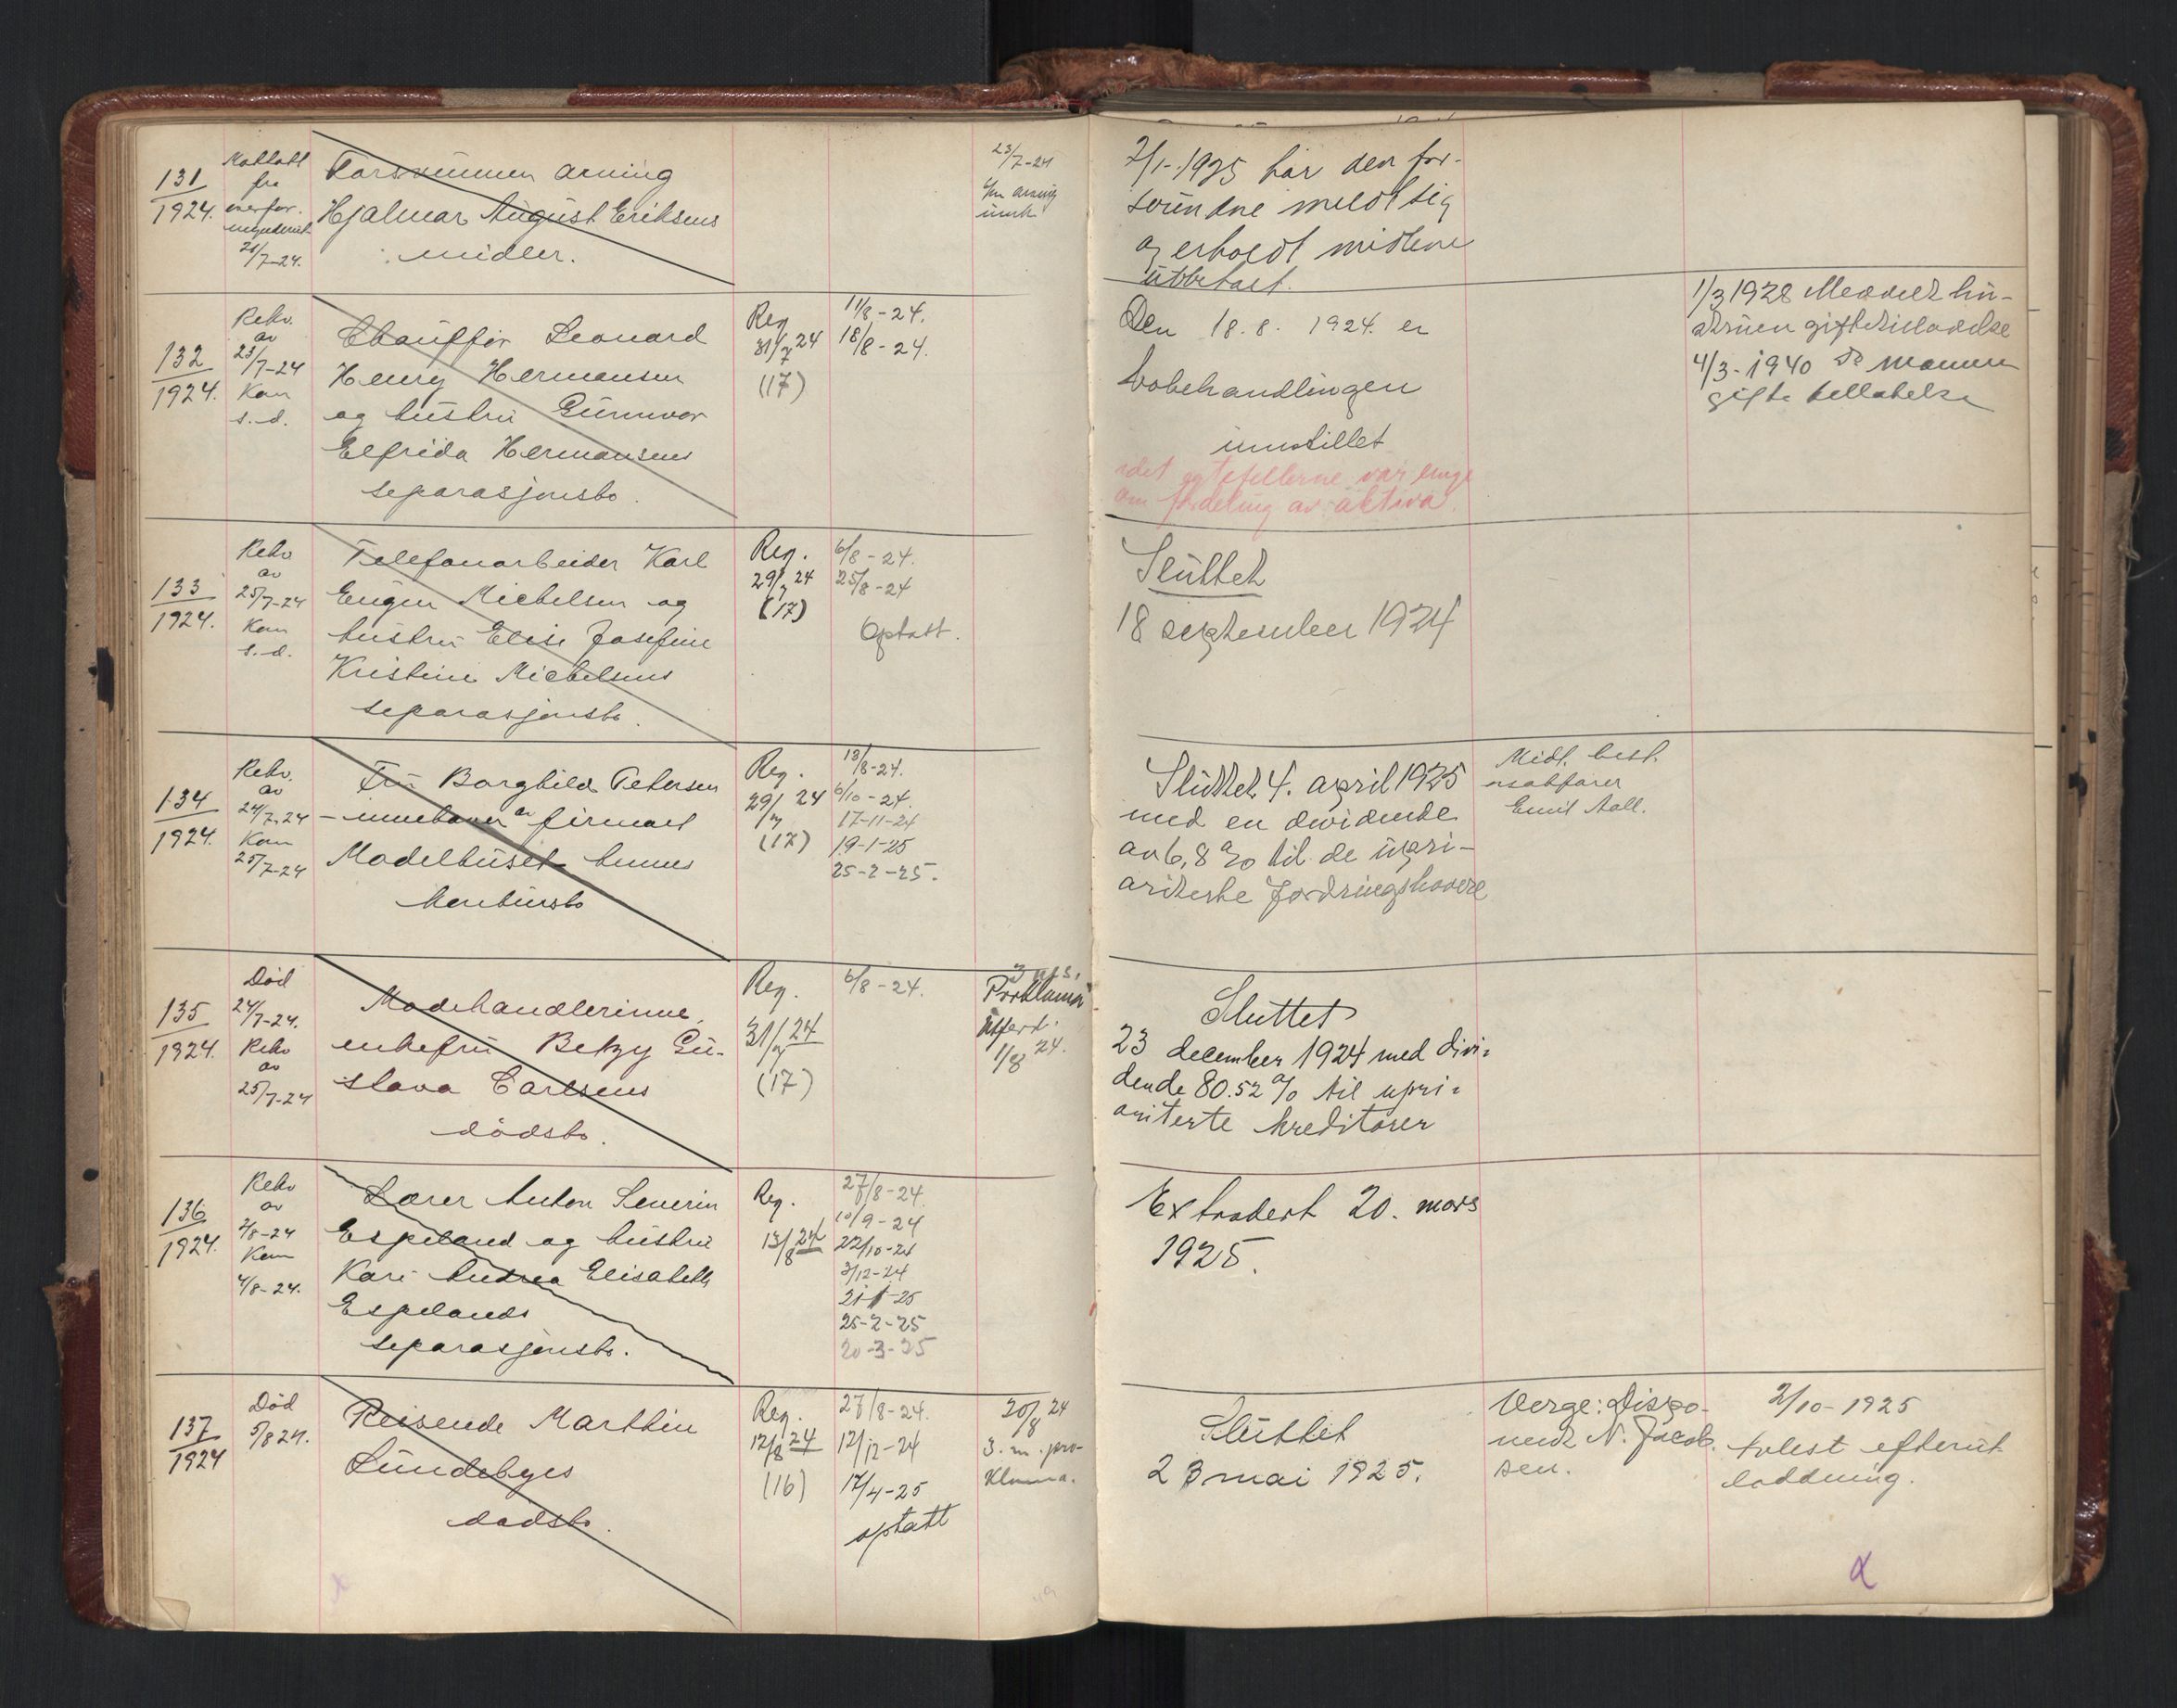 131
1924.
Mottatt
fra
overfor.
21/7-24.
Forsvunnen arving
Hjalmar August Eriksens
midler.
23/7-24
2/1-1925 har den for-
svundne meldt sig
og erholdt midlene
utbetalt.
132
1924.
Rekv.
av
23/7-24
Kom
s.d.
Chauffør Leonard
Henry Hermansen
og hustru Gunnvor
Elfrida Hermansens
separasjonsbo.
Reg
31/7 24
(17)
11/8-24.
18/8-24.
Den 18.8.1924. er
bobehandlingen
innstillet
idet egtefellerne var enige
om fordeling av aktiva.
1/3 1928 Meddelt hu-
struen giftetilladelse
4/3-1940 do mannen
gifte tillatelse
133
1924.
Rekv
av
25/7-24
Kom
s.d.
Telefonarbeider Karl
Eugen Michelsen og
hustru Elise Josefine
Kristine Michelsens
separasjonsbo.
Reg.
29/7 24
(17)
6/8-24.
25/8-24
Optatt.
Sluttet
18 september 1924
134
1924.
Rekv.
av
24/7-24
Kom
25/7-24
Fru Borghild Petersen
- innehaver av firmaet
Modelhuset - hennes
konkursbo
Reg.
29/7 24
(17)
18/8-24.
6/10-24.
17-11-24
19-1-25
25-2-25.
Sluttet 4. april 1925
med en dividende
av 6,8 % til de upri-
oriterte fordringshavere
Midl. best.
saksfører
Emil Aall.
135
1924.
Død
24/7-24.
Rekv
av
25/7-24
Modehandlerinne,
enkefru Betzy Gu-
stava Carlsens
dødsbo.
Reg.
31/7 24
(17)
6/8-24.
3 mds.
Proklama
utferd.
1/8 24.
Sluttet
23 december 1924 med divi-
dende 80.52 % til upri-
oriterte kreditorer
136
1924.
Rekv
av
2/8-24
Kom
4/8-24.
Lærer Anton Severin
Espeland og hustru
Kari Andrea Elisabeth
Espelands
separasjonsbo.
Reg.
13/8 24
27/8-24.
10/9-24
22/10-24
3/12-24
21-1-25
25-2-25
20-3-25
Extradert 20. mars
1925.
137
1924
Død
5/8 24.
Reisende Marthin
Lundebyes
dødsbo.
Reg.
12/8 24
(16)
27/8-24.
12/12-24
17/4-25
optatt
20/8 24
3. m. pro-
klama.
Sluttet
23 mai 1925.
Verge: Dispo-
nent N. Jacob-
sen.
2/10-1925